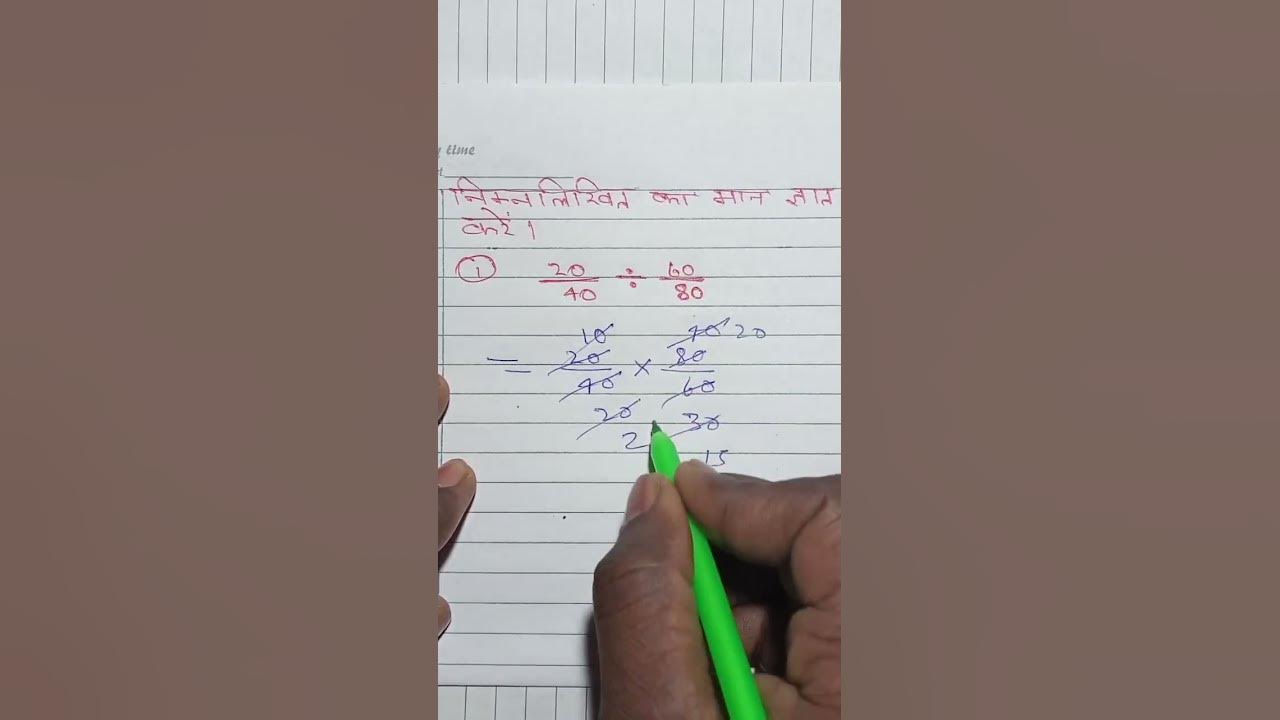 time
निम्नलिखित का मान ज्ञात
करें।
① 20/40 ÷ 60/80
10 40 20
= 20/40 × 80/60
20 30
2 15